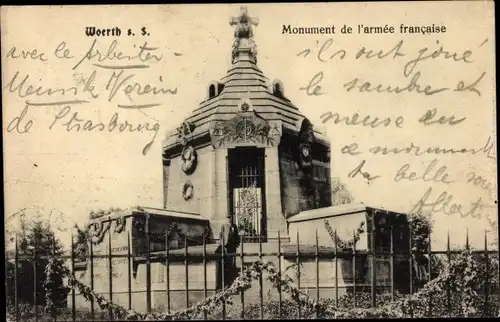 Woerth s. S.
Monument de l'armée française
avec le Arbeiter-
Musik Verein
de Strasbourg
ils ont joué
le sambre et
meuse au
ce monument
la belle
Albert